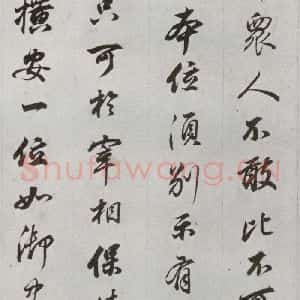 衆人不敢比不可
本位須別示有
只可於宰相保
横安一位如御
shufawang.cn